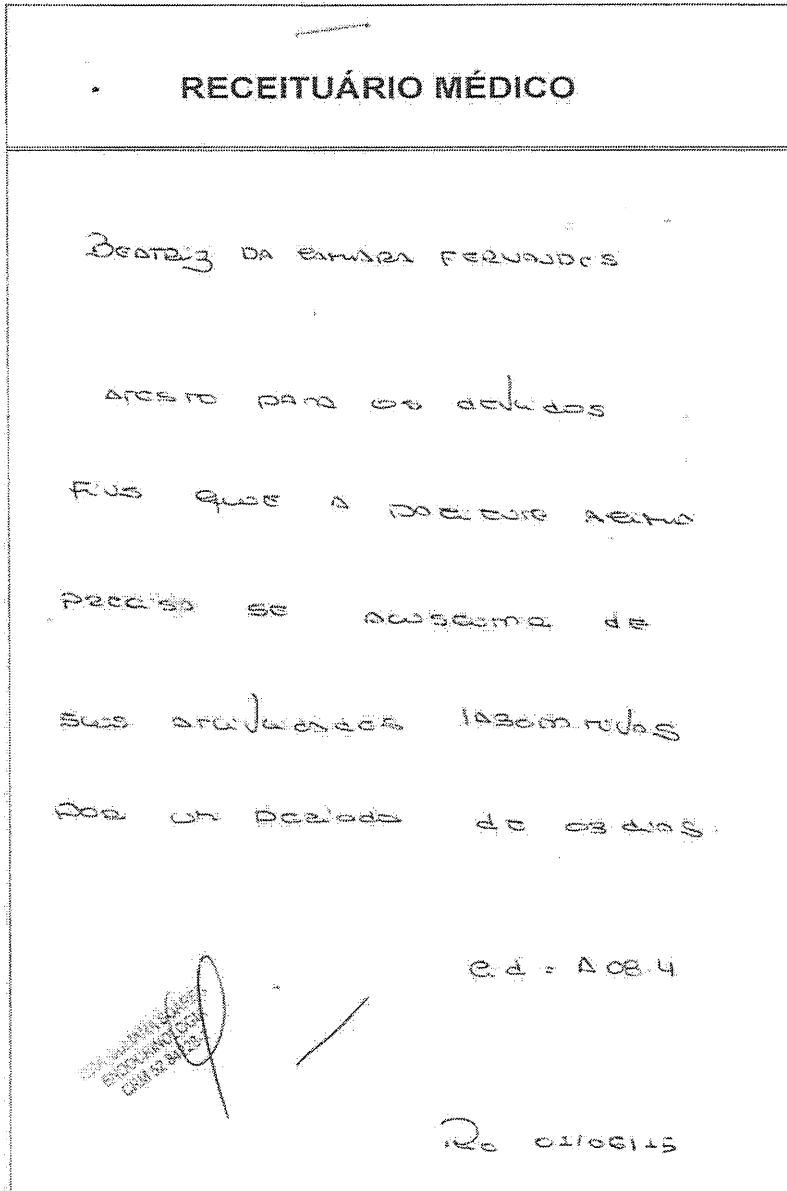 RECEITUÁRIO MÉDICO
BEATRIZ DA CAMARA FERNANDES
ATESTO PARA OS devidos
FINS QUE A PACIENTE ACIMA
PRECISA SE AUSENTAR de
SUAS ATIVIDADES LABORATIVAS
POR UM PERÍODO de 03 dias.
Cid = A 08.4
ENDOCRINOLOGIA
CRM 52
Rio 01/06/15